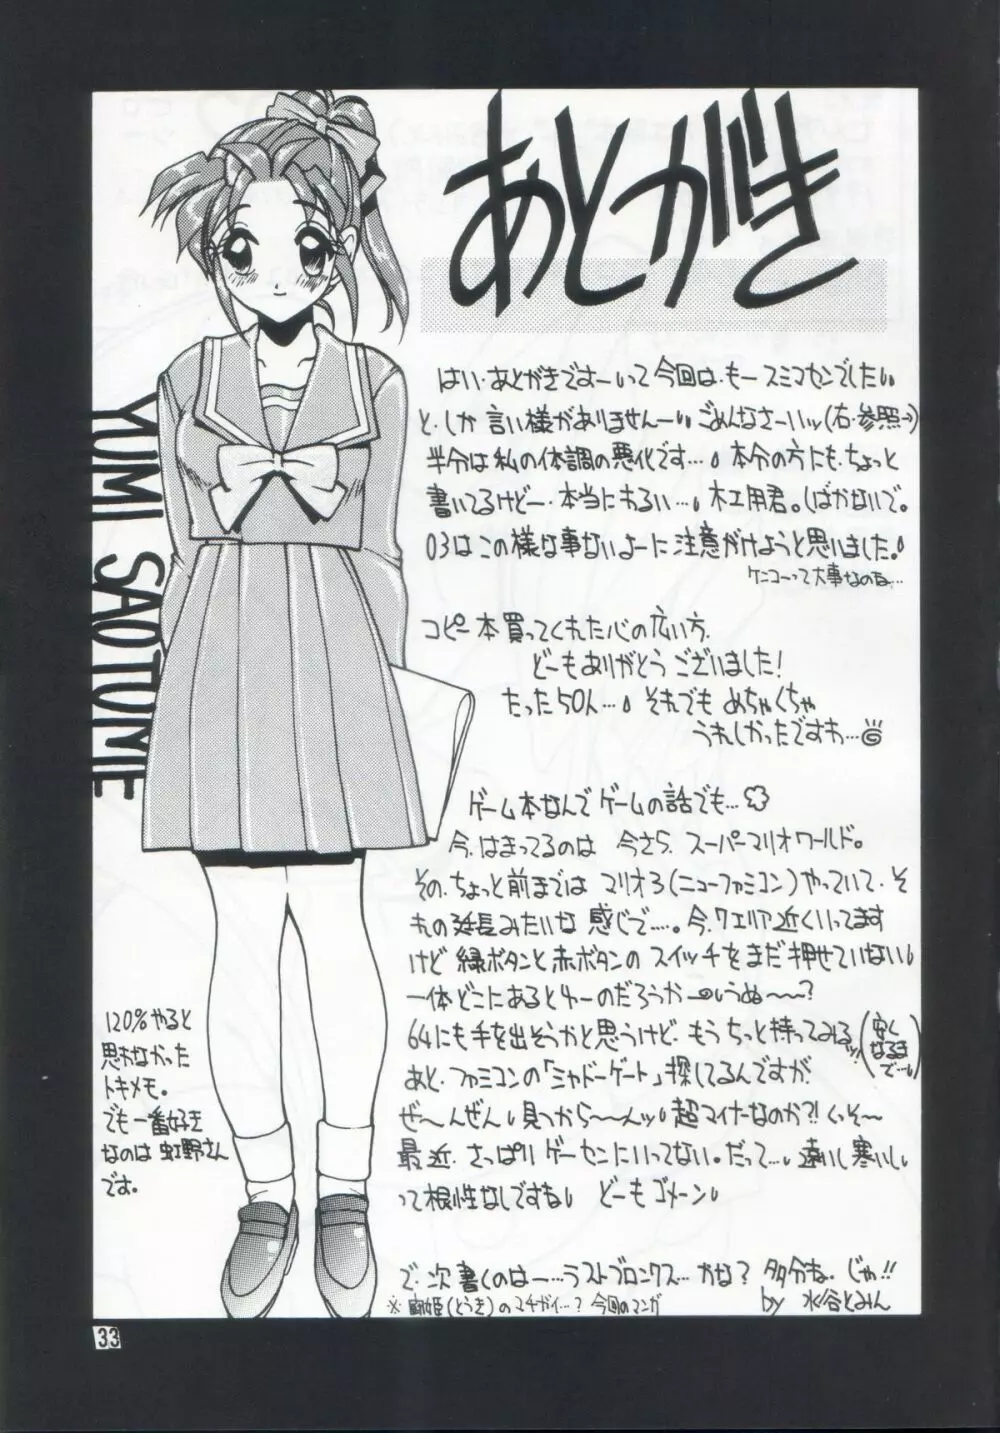 あとがき
はい・あとがきですーいって今回は、もースミマセンでした
と、しか言い様がありませんー ごめんなさーいッ(右・参照→)
半分は私の体調の悪化です…。本分の方にも、ちょっと
書いてるけどー、本当にわるい…。木工用君。しばかないで。
03はこの様な事ないよーに注意がけようと思いました。
ケンコーって大事なのね…
コピー本買ってくれた心の広い方、
どーもありがとうございました!
たった50人…。それでもめちゃくちゃ
うれしかったですわ…
ゲーム本なんでゲームの話でも…
今、はまってるのは 今さら、スーパーマリオワールド。
その、ちょっと前までは マリオ3(ニューファミコン)やっていて、そ
れの延長みたいな 感じで……。今、7エリア近くいってます
けど 緑ボタンと赤ボタンの スイッチをまだ押せていない
一体どこにあるとゆーのだろうか うぬ〜〜?
64にも手を出そうかと思うけど、もうちっと待ってみるッ(安くなるまで…)
あと、ファミコンの「シャドーゲート」探してるんですが、
ぜ〜んぜん 見つから〜〜んッ 超マイナーなのか?!くっそ〜
最近、さっぱりゲーセンにいってない。だって… 遠いし寒いし
って根性なしですね どーもゴメーン
で、次書くのはー…ラストブロンクス…かな? 多分ね。じゃ!!
by 水谷とみん
※ (とうき)のマチガイ…? 今回のマンガ
YUMI SAOTOME
120%やると
思わなかった
トキメモ。
でも一番好き
なのは虹野さん
です。
33